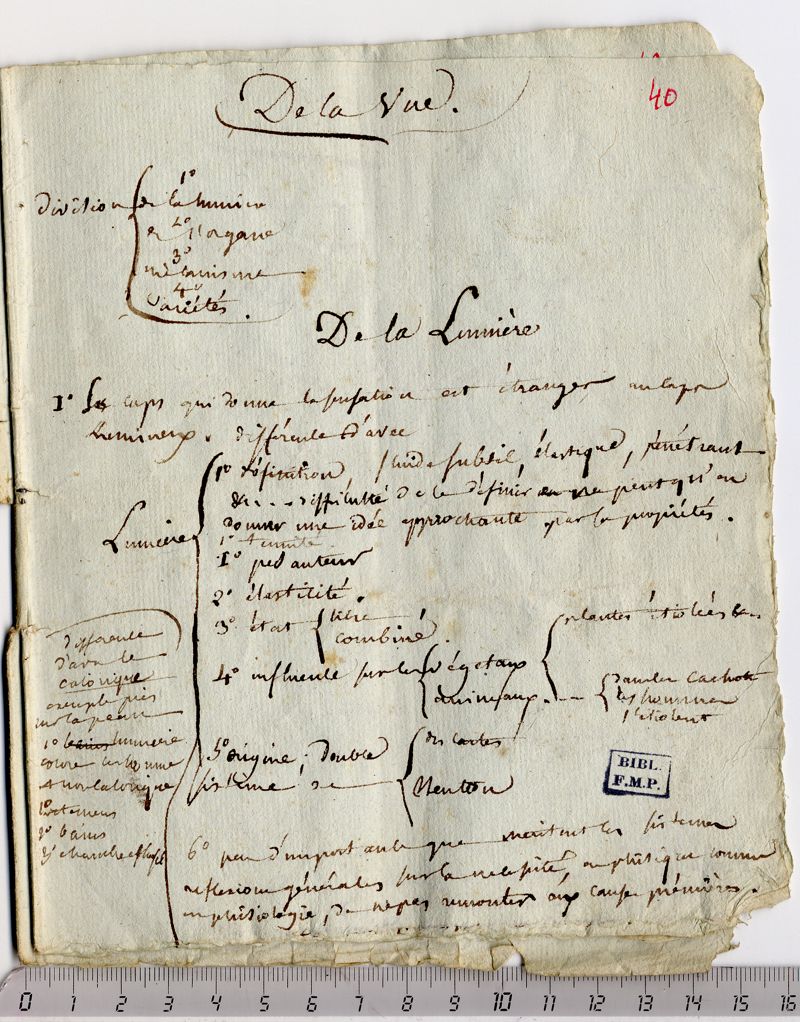 40
De la Vue.
division
1º
de la lumière
2º
de l'organe
3º
mécanisme
4º
Variétés.
De la Lumière
1º Le corps qui donne la sensation est étranger au corps
lumineux. différente d'avec
Lumière
1º définition fluide subtil, élastique, pénétrant
&c. difficulté de le définir, on ne peut qu'en
donner une idée approchante par les propriétés.
1º tenuité
1º pesanteur
2º élasticité.
3º état libre
combiné.
4º influence sur les végétaux
plantes étiolées &c.
animaux.
dans les cachots
les hommes
s'étiolent
5º origine, double
sistême de
des cartes
Newton
6º peu d'importance que méritent les sistemes
reflexions générales sur la necessité, en phisique comme
en phisiologie, de ne pas remonter aux causes premières.
différente
d'avec le
calorique
exemple pris
sur la peau
1º lumière
colore les homme
& non calorique
1º vetemens
2º bains
BIBL.
F.M.P.
0 1 2 3 4 5 6 7 8 9 10 11 12 13 14 15 16